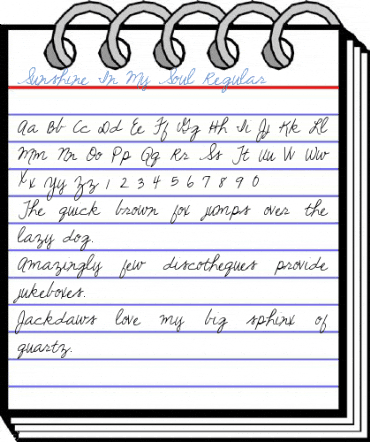 Sunshine In My Soul Regular
Aa Bb Cc Dd Ee Ff Gg Hh Ii Jj Kk Ll
Mm Nn Oo Pp Qq Rr Ss Tt Uu Vv Ww
Xx Yy Zz 1 2 3 4 5 6 7 8 9 0
The quick brown fox jumps over the
lazy dog.
Amazingly few discotheques provide
jukeboxes.
Jackdaws love my big sphinx of
quartz.